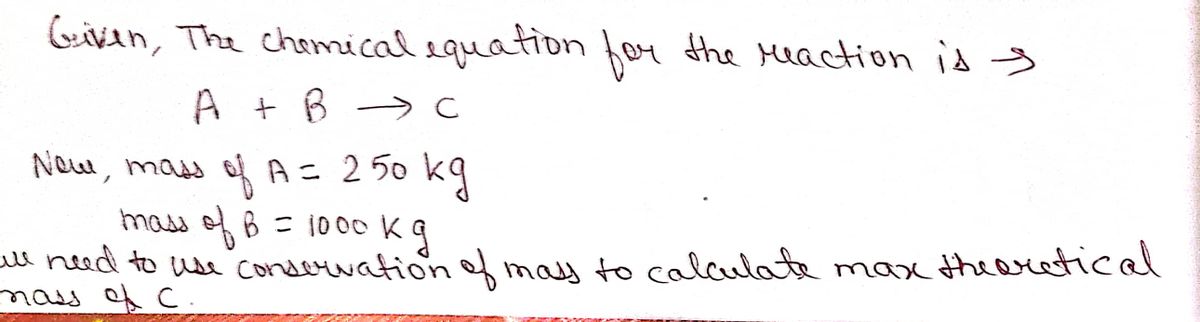 Given, The chemical equation for the reaction is →
A + B → C
Now, mass of A = 250 kg
mass of B = 1000 kg
we need to use conservation of mass to calculate max theoretical
mass of C.